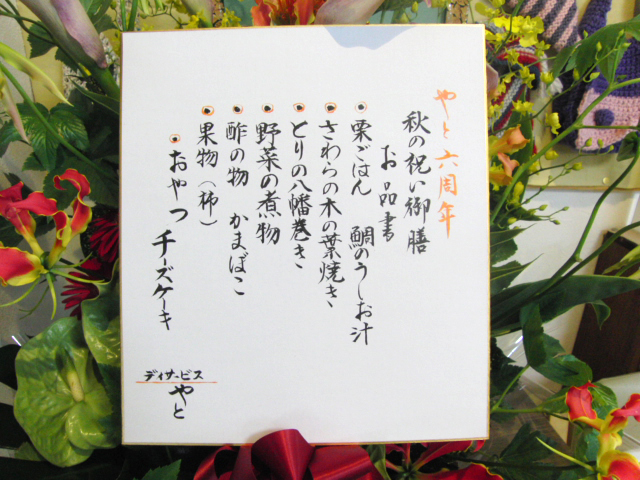 やと六周年
秋の祝い御膳
お品書
栗ごはん 鯛のうしお汁
さわらの木の葉焼き
とりの八幡巻き
野菜の煮物
酢の物 かまぼこ
果物(柿)
おやつ チーズケーキ
デイサービス
やと